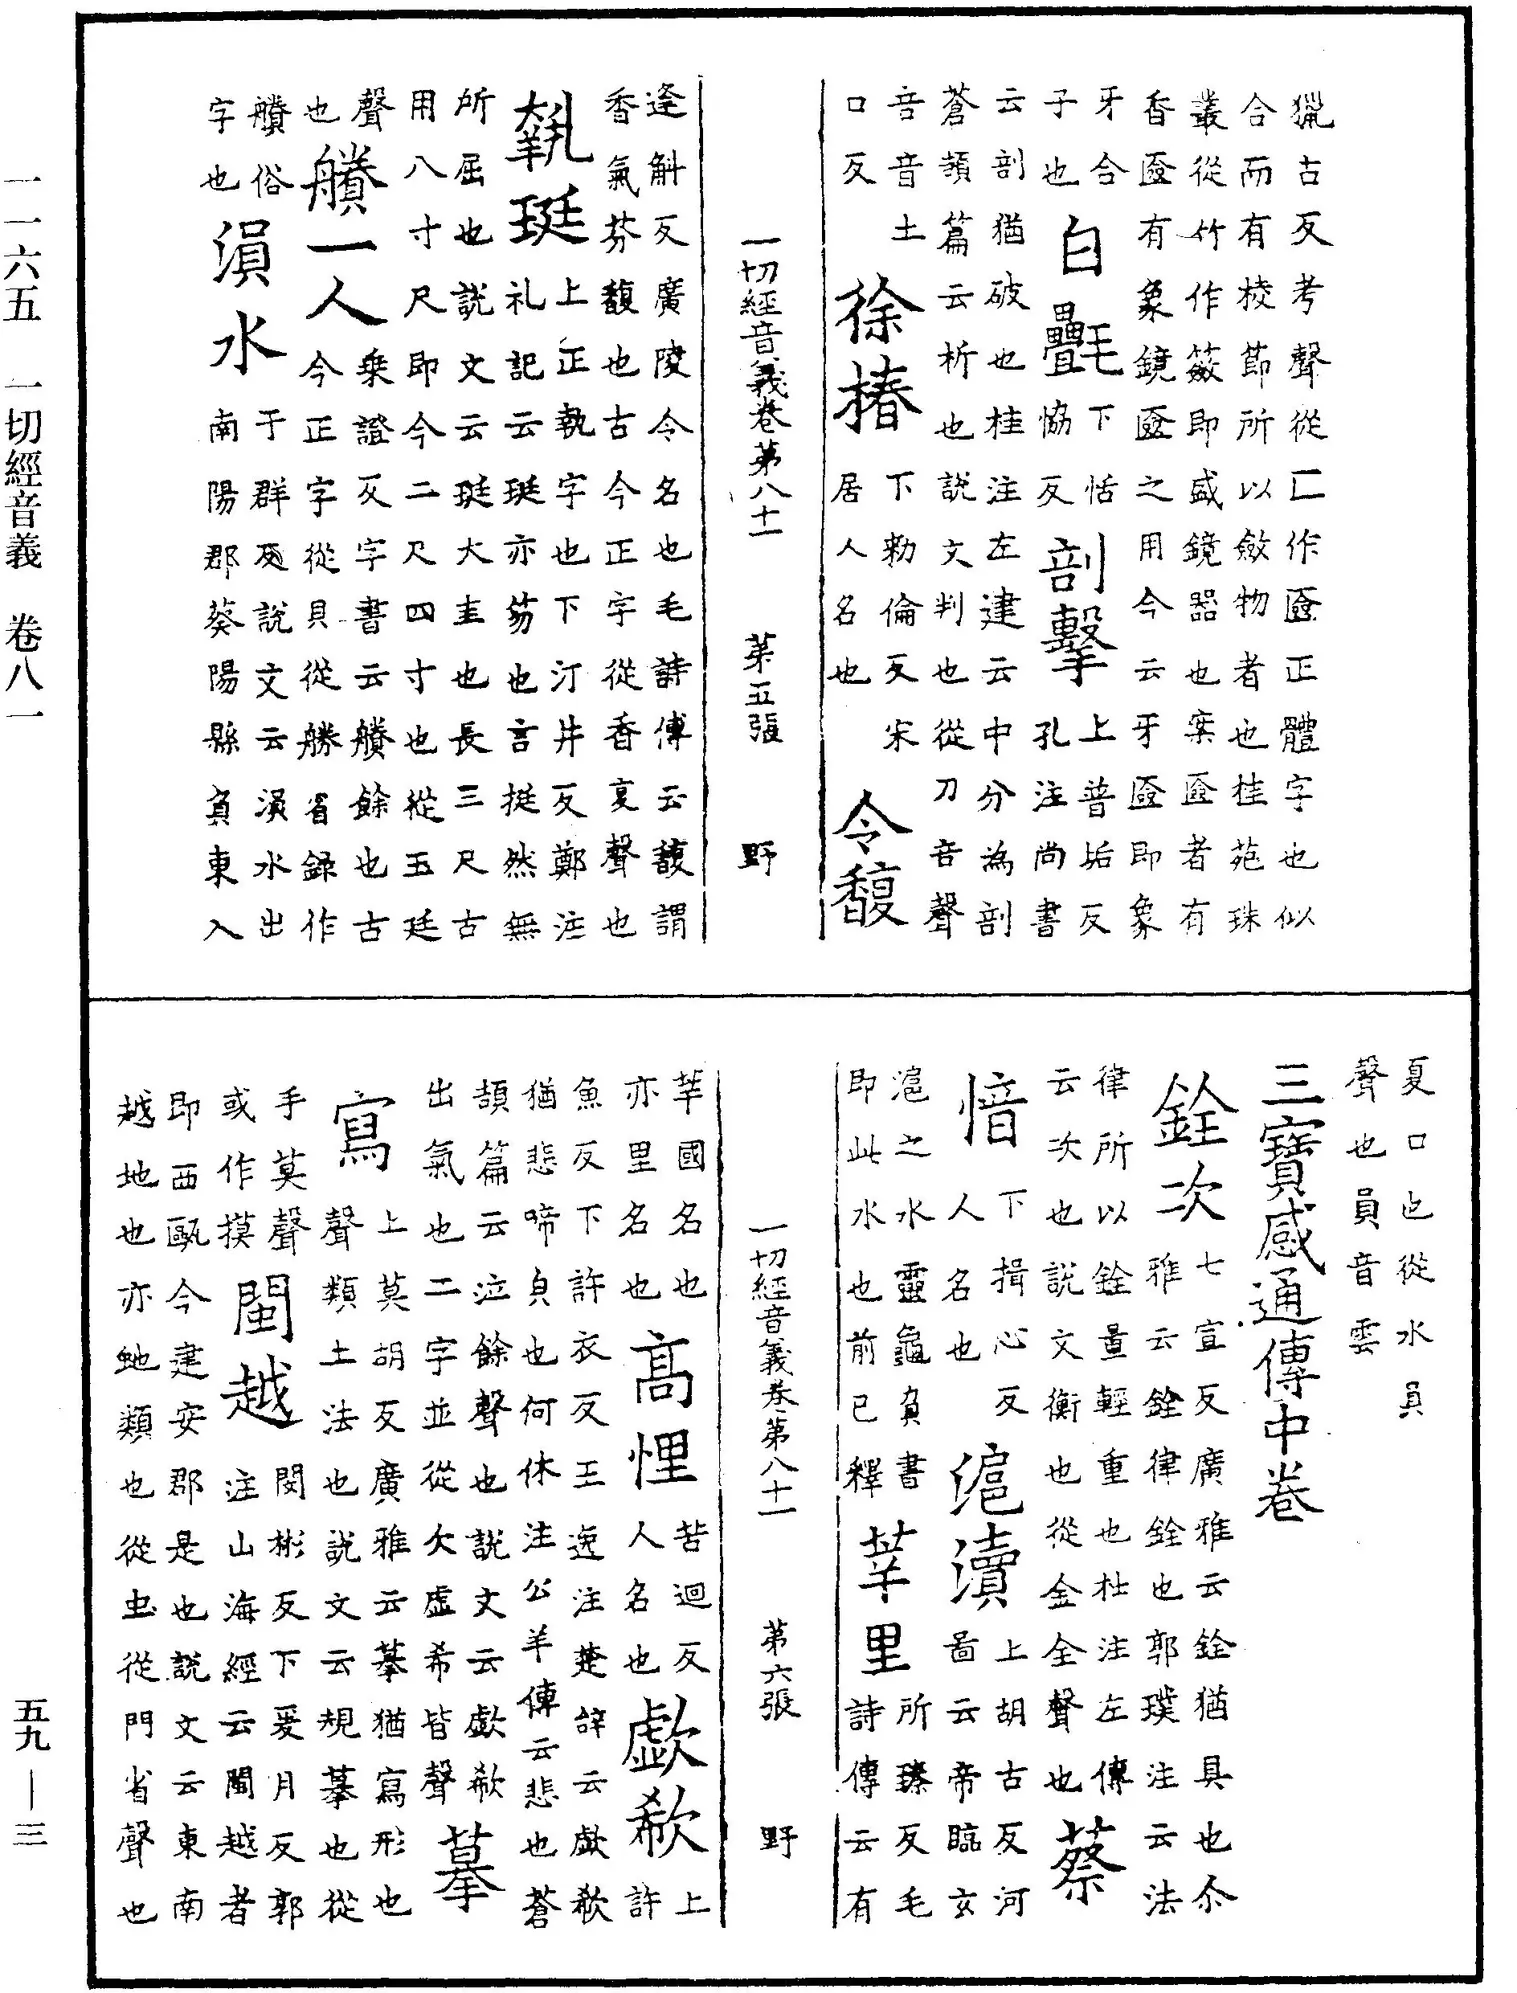 獵古反考聲從匚作匳正體字也似
合而有棱節所以斂物者也桂苑珠
叢從竹作籢即盛鏡器也案匳者有
香匳有象鏡匳之用今云牙匳即象
牙合
子也
白㲲
下恬
恊反
剖擊
上普垢反
孔注尚書
云剖猶破也桂注左建云中分為剖
蒼頡篇云析也說文判也從刀音聲
音音土
口反
徐椿
下勑倫反宋
居人名也
令馥
一切經音義卷第八十一 第五張 野
逢斛反廣陵令名也毛詩傳云馥謂
香氣芬馥也古今正字從香复聲也
執珽
上正執字也下汀井反鄭注
礼記云珽亦笏也言挺然無
所屈也說文云珽大圭也長三尺古
用八寸尺即今二尺四寸也從玉廷
聲
也
賸一人
乗證反字書云賸餘也古
今正字從貝從勝省録作
賸俗
字也
溳水
于群反說文云溳水出
南陽郡蔡陽縣負東入
夏口也從水員
聲也員音雲
三寶感通傳中卷
銓次
七宣反廣雅云銓猶具也尒
雅云銓律銓也郭璞注云法
律所以銓量輕重也杜注左傳
云次也說文衡也從金全聲也
蔡
愔
下揖心反
人名也
滬瀆
上胡古反河
啚云帝臨玄
滬之水靈龜負書
即此水也前已釋
莘里
所臻反毛
詩傳云有
一切經音義卷第八十一 第六張 野
莘國名也
亦里名也
高悝
苦迴反
人名也
歔欷
上
許
魚反下許衣反王逸注楚辞云歔欷
猶悲啼皃也何休注公羊傳云悲也蒼
頡篇云泣餘聲也說文云歔欷
出氣也二字並從欠虛希皆聲
摹
寫
上莫胡反廣雅云摹猶寫形也
聲類土法也說文云規摹也從
手莫聲
或作摸
閩越
閔彬反下爰月反郭
注山海經云閩越者
即西甌今建安郡是也說文云東南
越地也亦虵類也從虫從門省聲也
一一六五 一切經音義 卷八一
五九—三